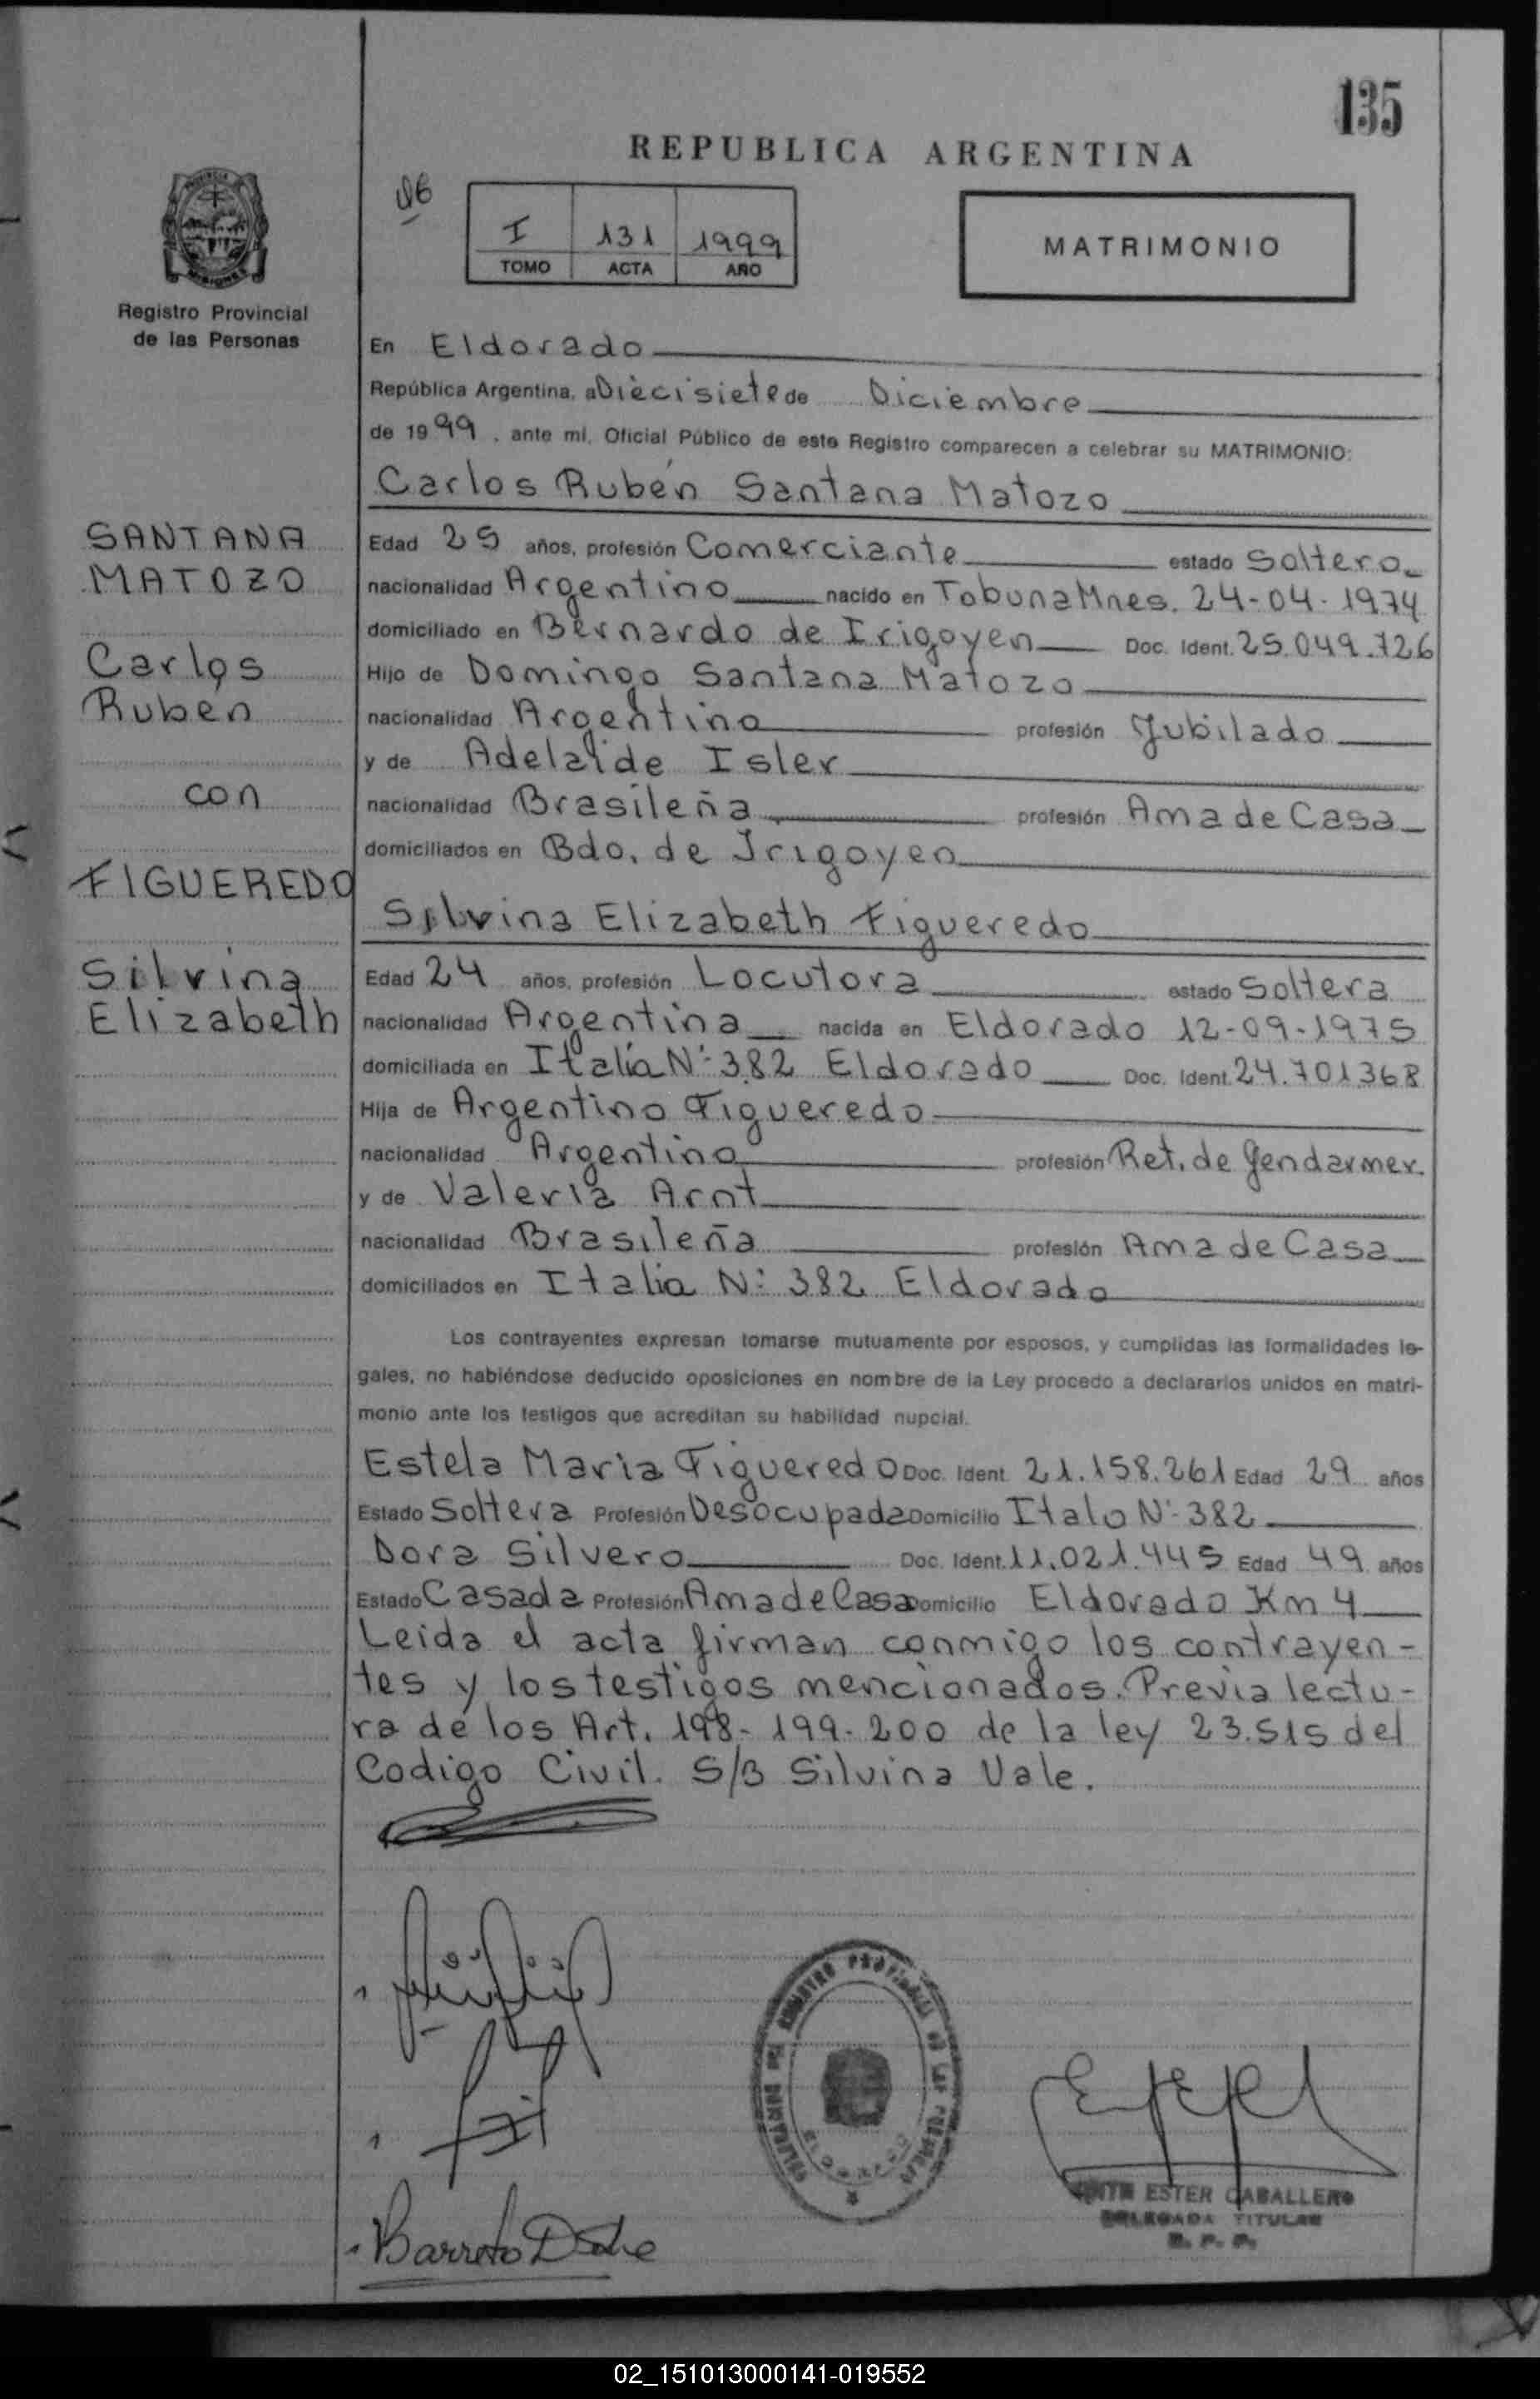 135
REPUBLICA ARGENTINA
I 131 1999
TOMO ACTA AÑO
MATRIMONIO
Registro Provincial
de las Personas
En Eldorado
República Argentina, a Diecisiete de Diciembre
de 1999, ante mí, Oficial Público de este Registro comparecen a celebrar su MATRIMONIO:
Carlos Rubén Santana Matozo
SANTANA
MATOZO
Carlos
Ruben
con
FIGUEREDO
Silvina
Elizabeth
Edad 25 años, profesión Comerciante estado Soltero
nacionalidad Argentino nacido en Tobuna Mnes. 24-04-1974
domiciliado en Bernardo de Irigoyen Doc. Ident. 25.049.726
Hijo de Domingo Santana Matozo
nacionalidad Argentino profesión Jubilado
y de Adelaide Isler
nacionalidad Brasileña profesión Ama de Casa
domiciliados en Bdo. de Irigoyen
Silvina Elizabeth Figueredo
Edad 24 años, profesión Locutora estado Soltera
nacionalidad Argentina nacida en Eldorado 12-09-1975
domiciliada en Italia Nº 382 Eldorado Doc. Ident. 24.701368
Hija de Argentino Figueredo
nacionalidad Argentino profesión Ret. de Gendarmer.
y de Valeria Arnt
nacionalidad Brasileña profesión Ama de Casa
domiciliados en Italia Nº 382 Eldorado
Los contrayentes expresan tomarse mutuamente por esposos, y cumplidas las formalidades le-
gales, no habiéndose deducido oposiciones en nombre de la Ley procedo a declararlos unidos en matri-
monio ante los testigos que acreditan su habilidad nupcial.
Estela Maria Figueredo Doc. Ident. 21.158.261 Edad 29 años
Estado Soltera Profesión Desocupada Domicilio Italo Nº 382
Dora Silvero Doc. Ident. 11.021.445 Edad 49 años
Estado Casada Profesión Ama de Casa Domicilio Eldorado Km 4
Leida el acta firman conmigo los contrayen-
tes y los testigos mencionados. Previa lectu-
ra de los Art. 198-199-200 de la ley 23.515 del
Codigo Civil. S/B Silvina Vale.
REGISTRO PROVINCIAL DE LAS PERSONAS
ELDORADO
ESTER CABALLERO
DELEGADA TITULAR
R. P. P.
Barreto
02_151013000141-019552